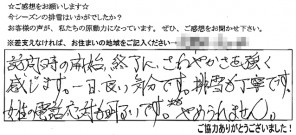 ☆ご感想をお願いします☆
今シーズンの排雪はいかがでしたか？
お客様の声が、私たちの原動力になっています。ぜひ、ご感想をお聞かせ下さい。
※差支えなければ、お住まいの地域をご記入ください→
訪問時の開始、終了に、さわやかさを強く
感じます。一日、良い気分です。排雪も丁寧です。
女性の電話応対も明るいです。やめられません。
ご協力ありがとうございました！